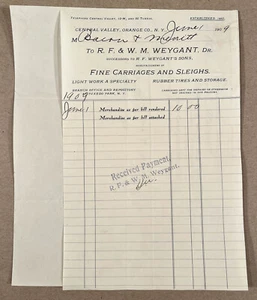 TELEPHONE CENTRAL VALLEY,
ESTABLISHED
CENTRAL VALLEY, ORANGE CO., N. Y. June 1 1909
M Bacon &
To R. F. & W. M. WEYGANT, DR.
SUCCESSORS TO R. F. WEYGANT'S SONS,
MANUFACTURERS OF
FINE CARRIAGES AND SLEIGHS.
LIGHT WORK A SPECIALTY RUBBER TIRES AND STORAGE.
BRANCH OFFICE AND REPOSITORY
N. Y.
1909
June 1 Merchandise as per bill rendered 10 00
Merchandise as per bill attached
Received Payment,
R. F. & W. M. Weygant,